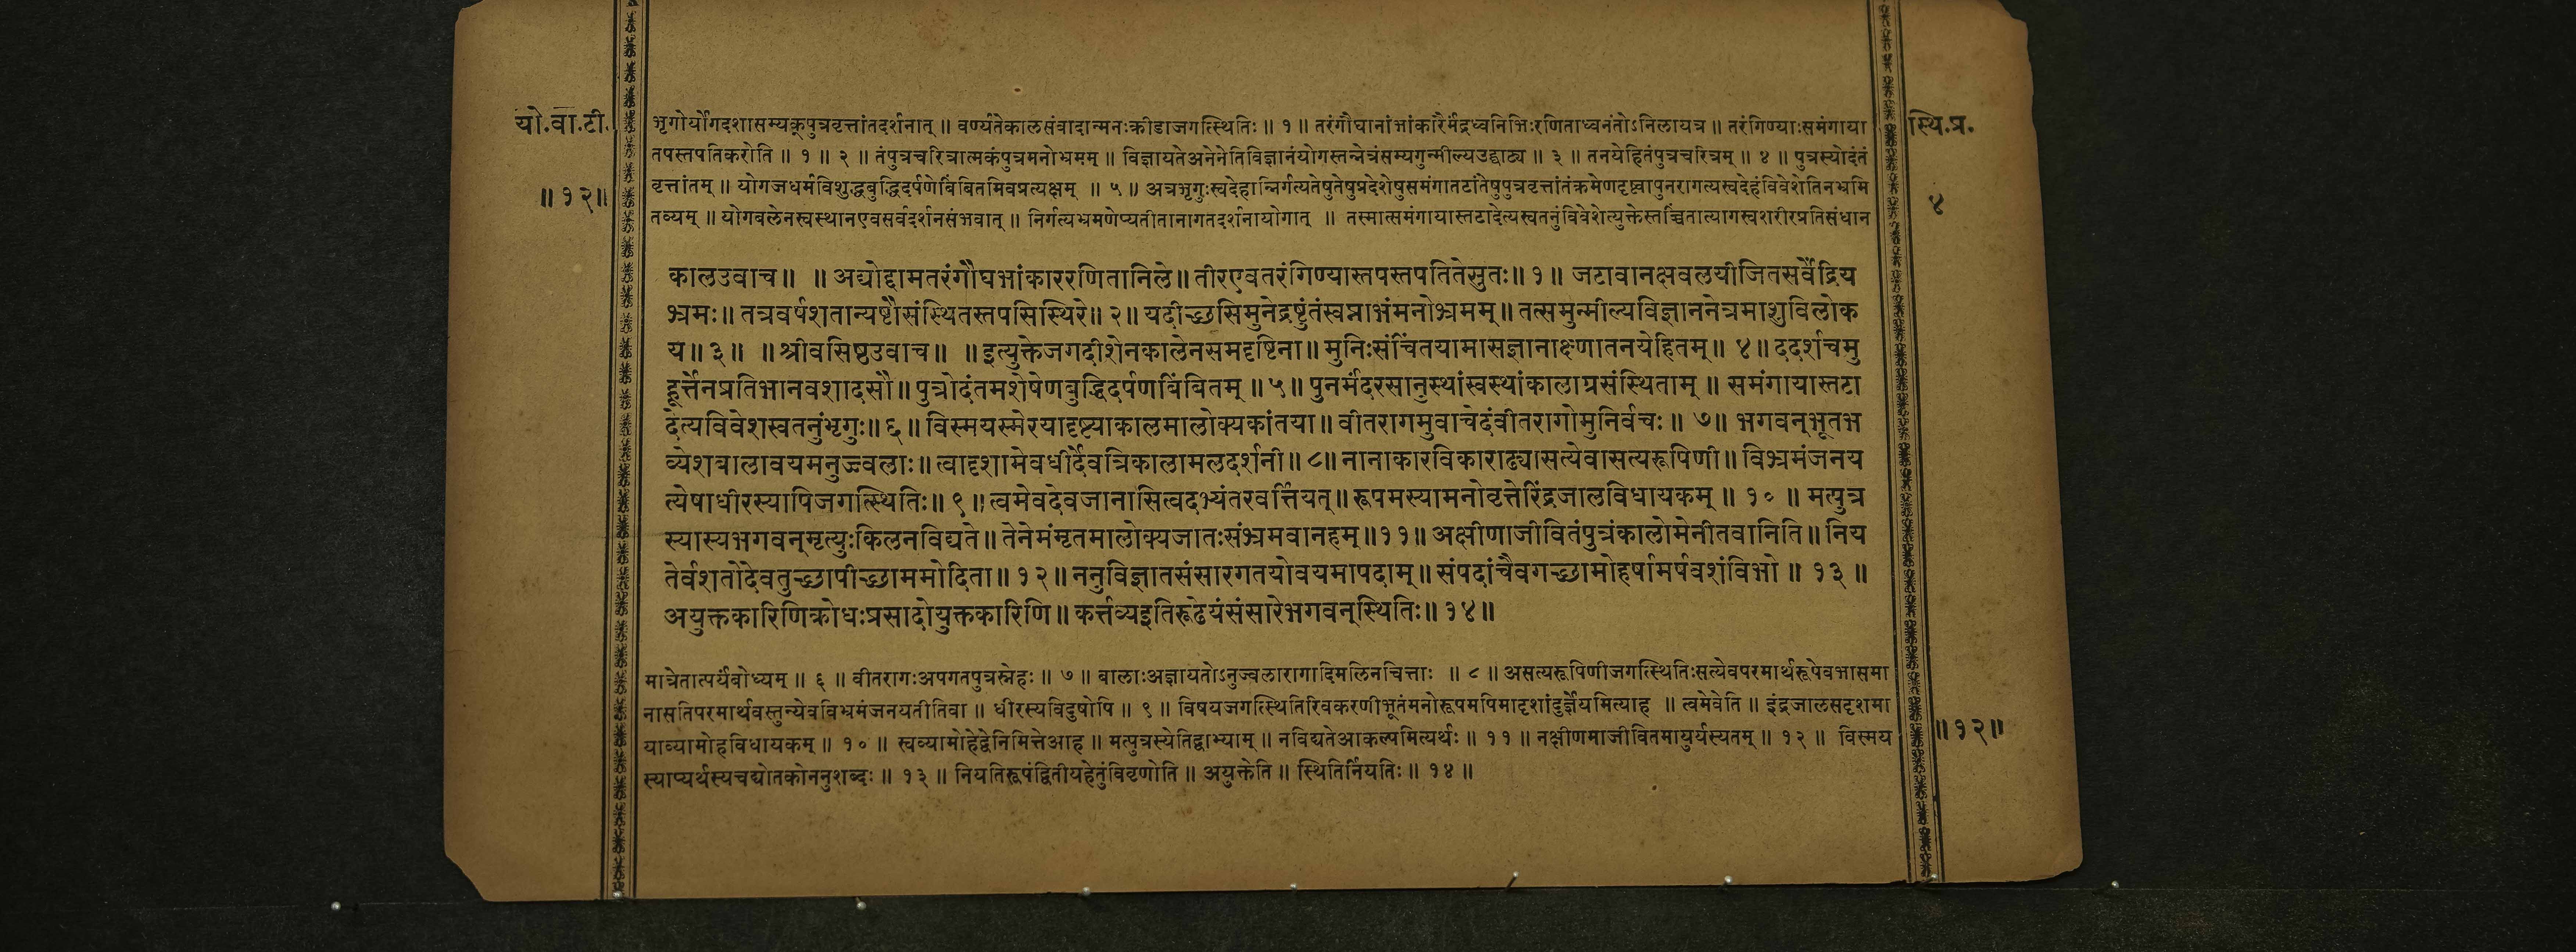 यो.वा.टी.
॥१२॥
स्थि.प्र.
४
भृगोर्योगदशासम्यक्पुत्रवृत्तांतदर्शनात् ॥ वर्ण्यतेकालसंवादान्मनःक्रीडाजगत्स्थितिः ॥ १ ॥ तरंगौघानांभांकारैर्मंद्रध्वनिभिःरणिताध्वनंतोऽनिलायत्र ॥ तरंगिण्याःसमंगाया
तपस्तपतिकरोति ॥ १ ॥ २ ॥ तंपुत्रचरित्रात्मकंपुत्रमनोभ्रमम् ॥ विज्ञायतेअनेनेतिविज्ञानंयोगस्तन्नेत्रंसम्यगुन्मील्यउद्घाट्य ॥ ३ ॥ तनयेहितंपुत्रचरित्रम् ॥ ४ ॥ पुत्रस्योदंतं
वृत्तांतम् ॥ योगजधर्मविशुद्धबुद्धिदर्पणेबिंबितमिवप्रत्यक्षम् ॥ ५ ॥ अत्रभृगुःस्वदेहान्निर्गत्यतेषुतेषुप्रदेशेषुसमंगातटांतेषुपुत्रवृत्तांतंक्रमेणदृष्ट्वापुनरागत्यस्वदेहंविवेशेतिनभ्रमि
तव्यम् ॥ योगबलेनस्वस्थानएवसर्वदर्शनसंभवात् ॥ निर्गत्यभ्रमणेप्यतीतानागतदर्शनायोगात् ॥ तस्मात्समंगायास्तटादेत्यस्वतनुंविवेशेत्युक्तेस्तच्चिंतात्यागस्वशरीरप्रतिसंधान
कालउवाच ॥ ॥ अद्योद्दामतरंगौघभांकाररणितानिले ॥ तीरएवतरंगिण्यास्तपस्तपतितेसुतः ॥ १ ॥ जटावानक्षवलयीजितसर्वेंद्रिय
भ्रमः ॥ तत्रवर्षशतान्यष्टौसंस्थितस्तपसिस्थिरे ॥ २ ॥ यदीच्छसिमुनेद्रष्टुंतंस्वप्नाभंमनोभ्रमम् ॥ तत्समुन्मील्यविज्ञाननेत्रमाशुविलोक
य ॥ ३ ॥ ॥ श्रीवसिष्ठउवाच ॥ ॥ इत्युक्तेजगदीशेनकालेनसमदृष्टिना ॥ मुनिःसंचिंतयामासज्ञानाक्ष्णातनयेहितम् ॥ ४ ॥ ददर्शचमु
हूर्त्तेनप्रतिभानवशादसौ ॥ पुत्रोदंतमशेषेणबुद्धिदर्पणबिंबितम् ॥ ५ ॥ पुनर्मंदरसानुस्थांस्वस्थांकालाग्रसंस्थिताम् ॥ समंगायास्तटा
देत्यविवेशस्वतनुंभृगुः ॥ ६ ॥ विस्मयस्मेरयादृष्ट्याकालमालोक्यकांतया ॥ वीतरागमुवाचेदंवीतरागोमुनिर्वचः ॥ ७ ॥ भगवन्भूतभ
व्येशबालावयमनुज्ज्वलाः ॥ त्वादृशामेवधीर्देवत्रिकालामलदर्शनी ॥ ८ ॥ नानाकारविकाराढ्यासत्येवासत्यरूपिणी ॥ विभ्रमंजनय
त्येषाधीरस्यापिजगत्स्थितिः ॥ ९ ॥ त्वमेवदेवजानासित्वदभ्यंतरवर्त्तियत् ॥ रूपमस्यामनोवृत्तेरिंद्रजालविधायकम् ॥ १० ॥ मत्पुत्र
स्यास्यभगवन्मृत्युःकिलनविद्यते ॥ तेनेमंमृतमालोक्यजातःसंभ्रमवानहम् ॥ ११ ॥ अक्षीणाजीवितंपुत्रंकालोमेनीतवानिति ॥ निय
तेर्वशतोदेवतुच्छापीच्छाममोदिता ॥ १२ ॥ ननुविज्ञातसंसारगतयोवयमापदाम् ॥ संपदांचैवगच्छामोहर्षामर्षवशंविभो ॥ १३ ॥
अयुक्तकारिणिक्रोधःप्रसादोयुक्तकारिणि ॥ कर्त्तव्यइतिरूढेयंसंसारेभगवन्स्थितिः ॥ १४ ॥
मात्रेतात्पर्यंबोध्यम् ॥ ६ ॥ वीतरागःअपगतपुत्रस्नेहः ॥ ७ ॥ बालाःअज्ञायतोऽनुज्वलारागादिमलिनचित्ताः ॥ ८ ॥ असत्यरूपिणीजगत्स्थितिःसत्येवपरमार्थरूपेवभासमा
नासतिपरमार्थवस्तुन्येवविभ्रमंजनयतीतिवा ॥ धीरस्यविदुषोपि ॥ ९ ॥ विषयजगत्स्थितिरिवकरणीभूतंमनोरूपमपिमादृशांदुर्ज्ञेयमित्याह ॥ त्वमेवेति ॥ इंद्रजालसदृशमा
याव्यामोहविधायकम् ॥ १० ॥ स्वव्यामोहेद्वेनिमित्तेआह ॥ मत्पुत्रस्येतिद्वाभ्याम् ॥ नविद्यतेआकल्पमित्यर्थः ॥ ११ ॥ नक्षीणमाजीवितमायुर्यस्यतम् ॥ १२ ॥ विस्मय
स्याप्यर्थस्यचद्योतकोननुशब्दः ॥ १३ ॥ नियतिरूपंद्वितीयहेतुंविवृणोति ॥ अयुक्तेति ॥ स्थितिर्नियतिः ॥ १४ ॥
॥१२॥